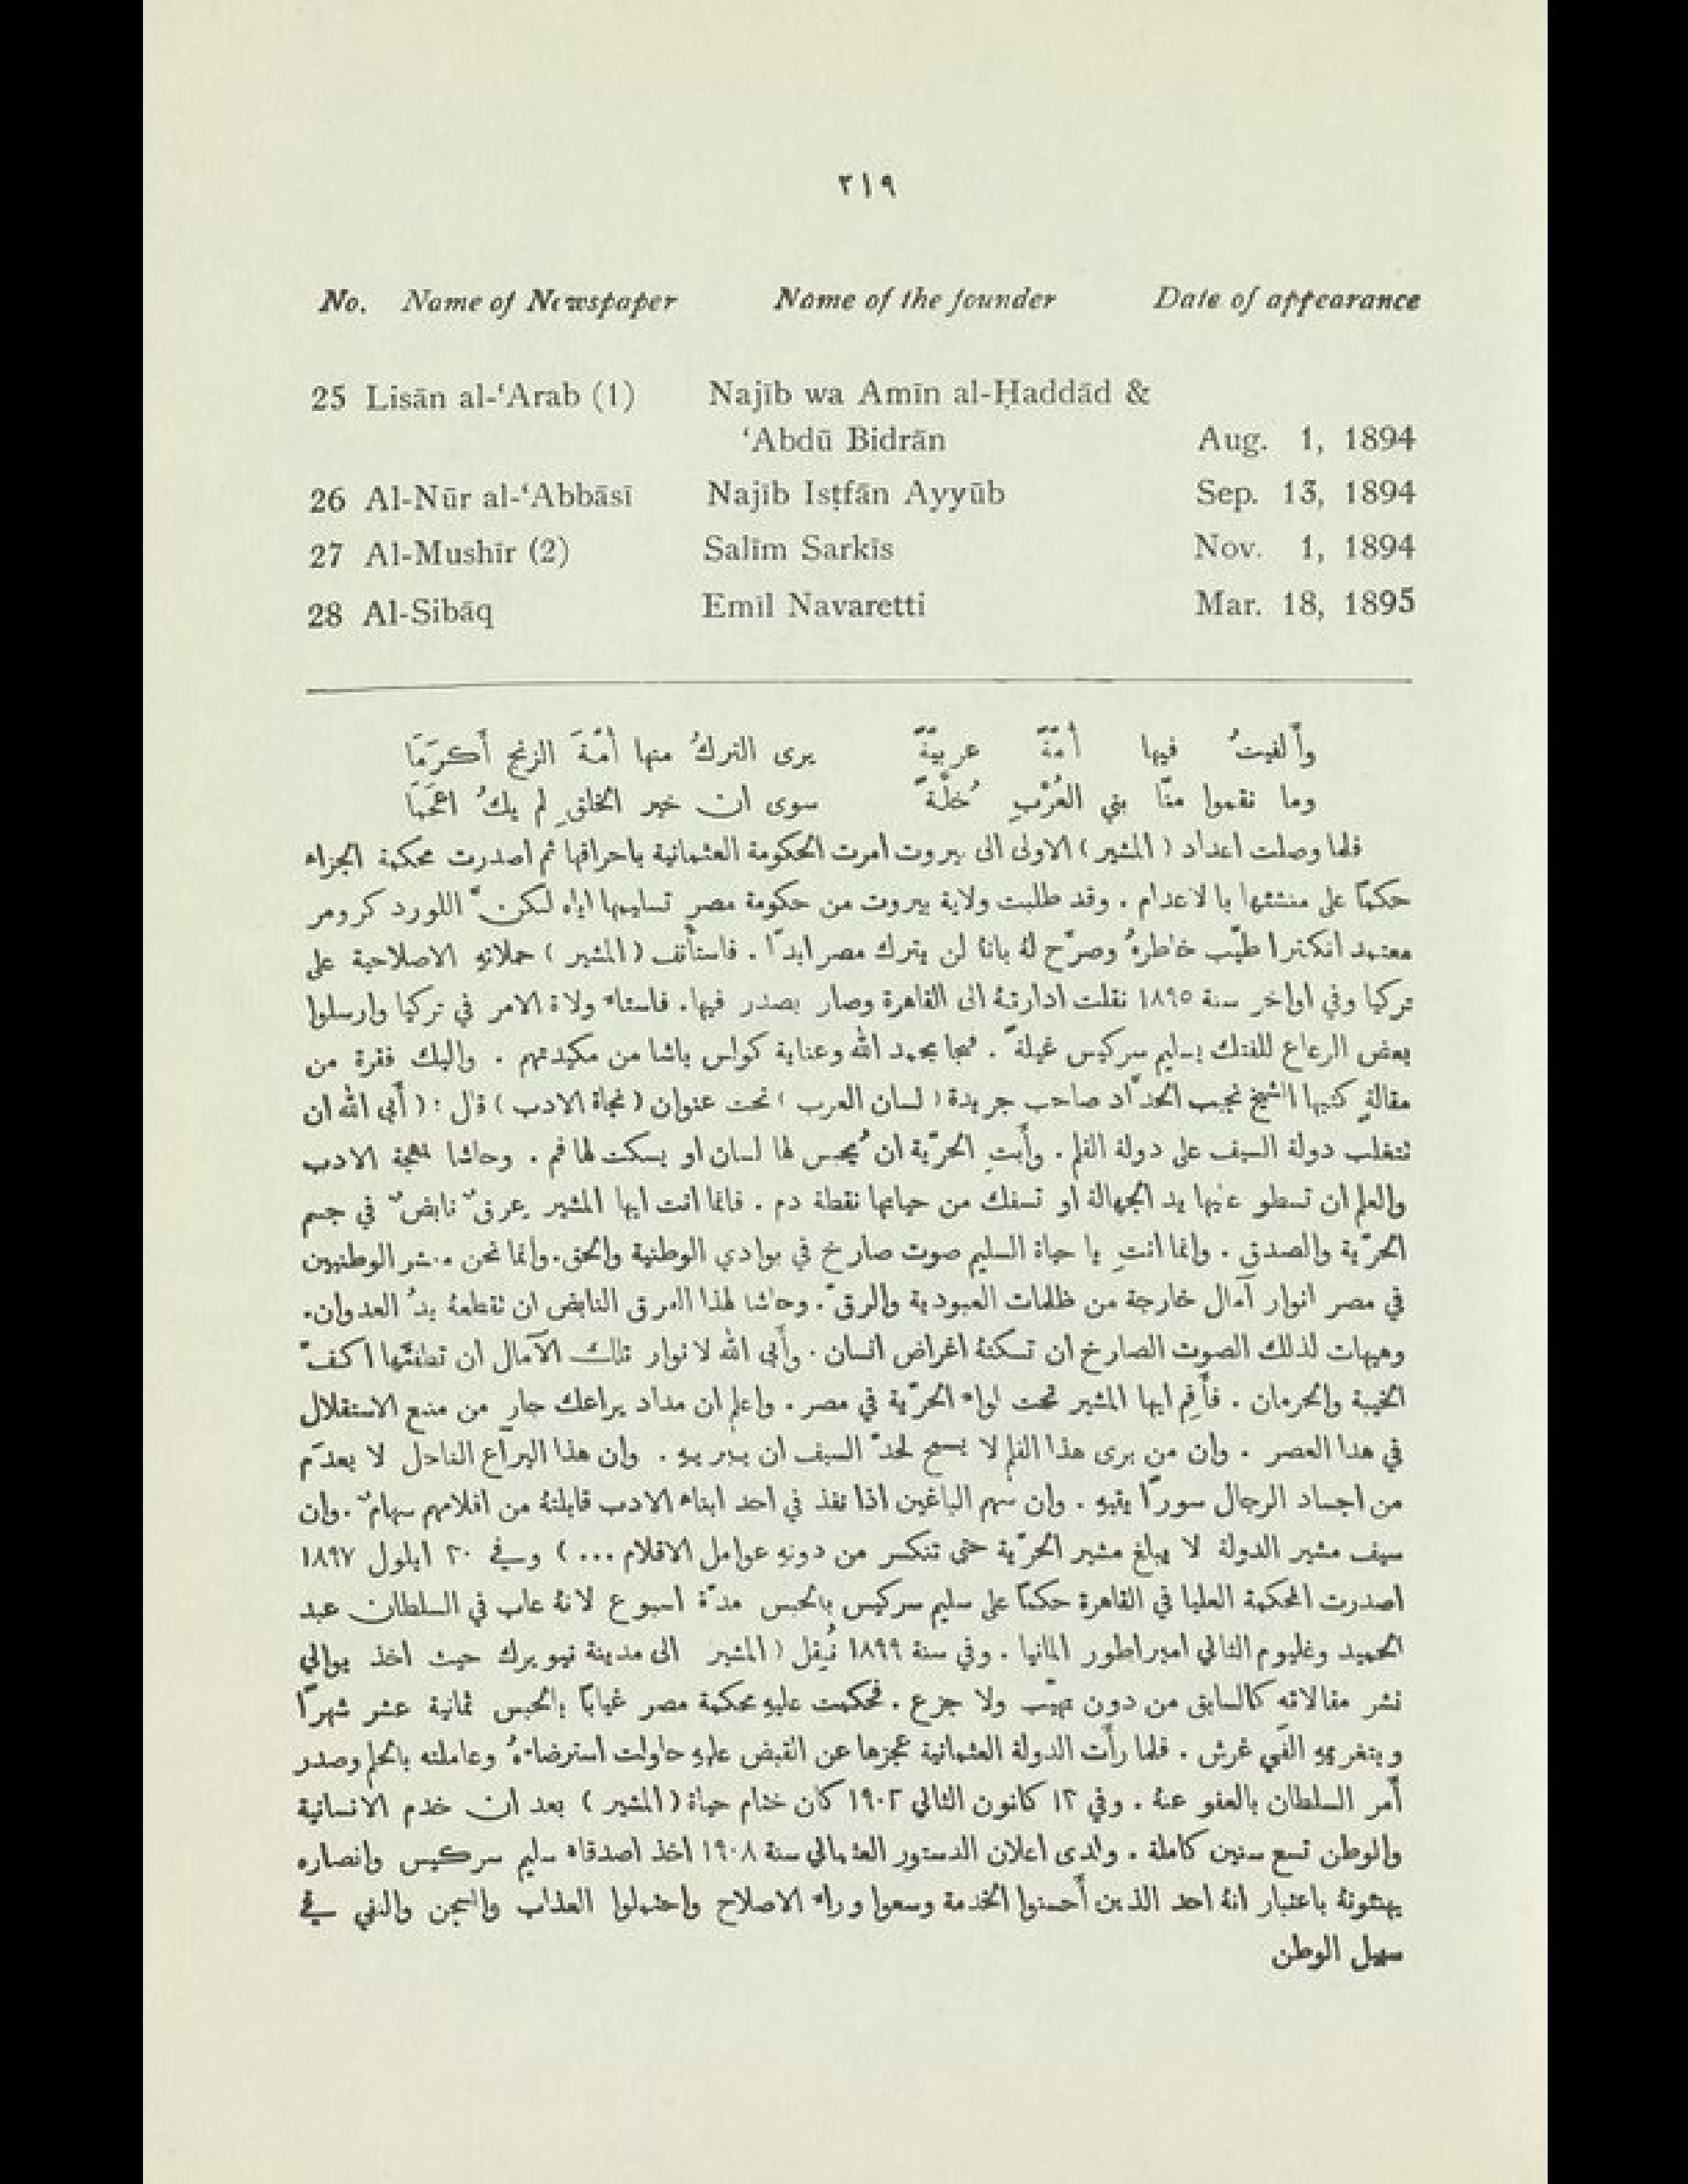 ٣١٩
No. Name of Newspaper Name of the founder Date of appearance
25 Lisān al-‘Arab (1) Najīb wa Amīn al-Ḥaddād &
‘Abdū Bidrān Aug. 1, 1894
26 Al-Nūr al-‘Abbāsī Najīb Isṭfān Ayyūb Sep. 13, 1894
27 Al-Mushīr (2) Salīm Sarkīs Nov. 1, 1894
28 Al-Sibāq Emīl Navaretti Mar. 18, 1895
وأَلفيتُ فيها أُمَّةً عربيَّةً يرى التركُ منها أُمَّةَ الزنج أَكرَمَا
وما نقموا منَّا بني العُرْبِ خُلَّةً سوى ان خير الخلقِ لم يكُ اعجَمَا
فلما وصلت اعداد (المشير) الاولى الى بيروت امرت الحكومة العثمانية باحراقها ثم اصدرت محكمة الجزاء
حكمًا على منشئها بالاعدام . وقد طلبت ولاية بيروت من حكومة مصر تسليمها اياه لكنَّ اللورد كرومر
معتمد انكلترا طيَّب خاطرهُ وصرَّح لهُ بانهُ لن يترك مصر ابدًا . فاستأنف (المشير) حملاتهِ الاصلاحية على
تركيا وفي اواخر سنة ١٨٩٥ نقلت ادارتهُ الى القاهرة وصار يصدر فيها. فاستاء ولاة الامر في تركيا وارسلوا
بعض الرعاع للفتك بسليم سركيس غيلةً . فنجا بحمد الله وعناية كولس باشا من مكيدتهم . واليك فقرة من
مقالةٍ كتبها الشيخ نجيب الحدَّاد صاحب جريدة (لسان العرب) تحت عنوان (نجاة الادب) قال : (أَبى الله ان
تتغلب دولة السيف على دولة القلم . وأَبتِ الحرّية ان يُحبس لها لسان او يسكت لها فم . وحاشا لمهجة الادب
والعلم ان تسطو عليها يد الجهالة او تسفك من حياتها نقطة دم . فانما انت ايها المشير عرقٌ نابضٌ في جسم
الحرّية والصدق . وانما انتِ يا حياة السليم صوت صارخ في بوادي الوطنية والحق.وانما نحن معشر الوطنيين
في مصر انوار آمال خارجة من ظلمات العبودية والرقّ. وحاشا لهذا العرق النابض ان تقطعهُ يدُ العدوان.
وهيهات لذلك الصوت الصارخ ان تسكتهُ اغراض انسان . وأَبى الله لانوار تلك الآمال ان تطفئها اكفّ
الخيبة والحرمان . فأَقِم ايها المشير تحت لواء الحرّية في مصر . واعلم ان مداد يراعك جارٍ من منبع الاستقلال
في هذا العصر . وان من برى هذا القلم لا يسمح لحدّ السيف ان يبريهِ . وان هذا اليراع الناحل لا يعدَم
من اجساد الرجال سورًا يقيهِ . وان سهم الباغين اذا نفذ في احد ابناء الادب قابلتهُ من اقلامهم سهامٌ .وان
سيف مشير الدولة لا يبلغ مشير الحرّية حتى تنكسر من دونهِ عوامل الاقلام ...) وفي ٢٠ ايلول ١٨٩٧
اصدرت المحكمة العليا في القاهرة حكمًا على سليم سركيس بالحبس مدّة اسبوع لانهُ عاب في السلطان عبد
الحميد وغليوم الثاني امبراطور المانيا . وفي سنة ١٨٩٩ نُقل (المشير الى مدينة نيويرك حيث اخذ يوالي
نشر مقالاته كالسابق من دون تهيّب ولا جزع . فحكمت عليهِ محكمة مصر غيابًا بالحبس ثمانية عشر شهرًا
وبتغريمهِ الفَي غرش . فلما رأَت الدولة العثمانية عجزها عن القبض عليهِ حاولت استرضاءهُ وعاملته بالحلم وصدر
أَمر السلطان بالعفو عنهُ . وفي ١٢ كانون الثاني ١٩٠٢ كان ختام حياة (المشير) بعد ان خدم الانسانية
والوطن تسع سنين كاملة . ولدى اعلان الدستور العثماني سنة ١٩٠٨ اخذ اصدقاء سليم سركيس وانصاره
يهنئونهُ باعتبار انهُ احد الذين أَحسنوا الخدمة وسعوا وراء الاصلاح واحتملوا العذاب والسجن والنفي في
سبيل الوطن